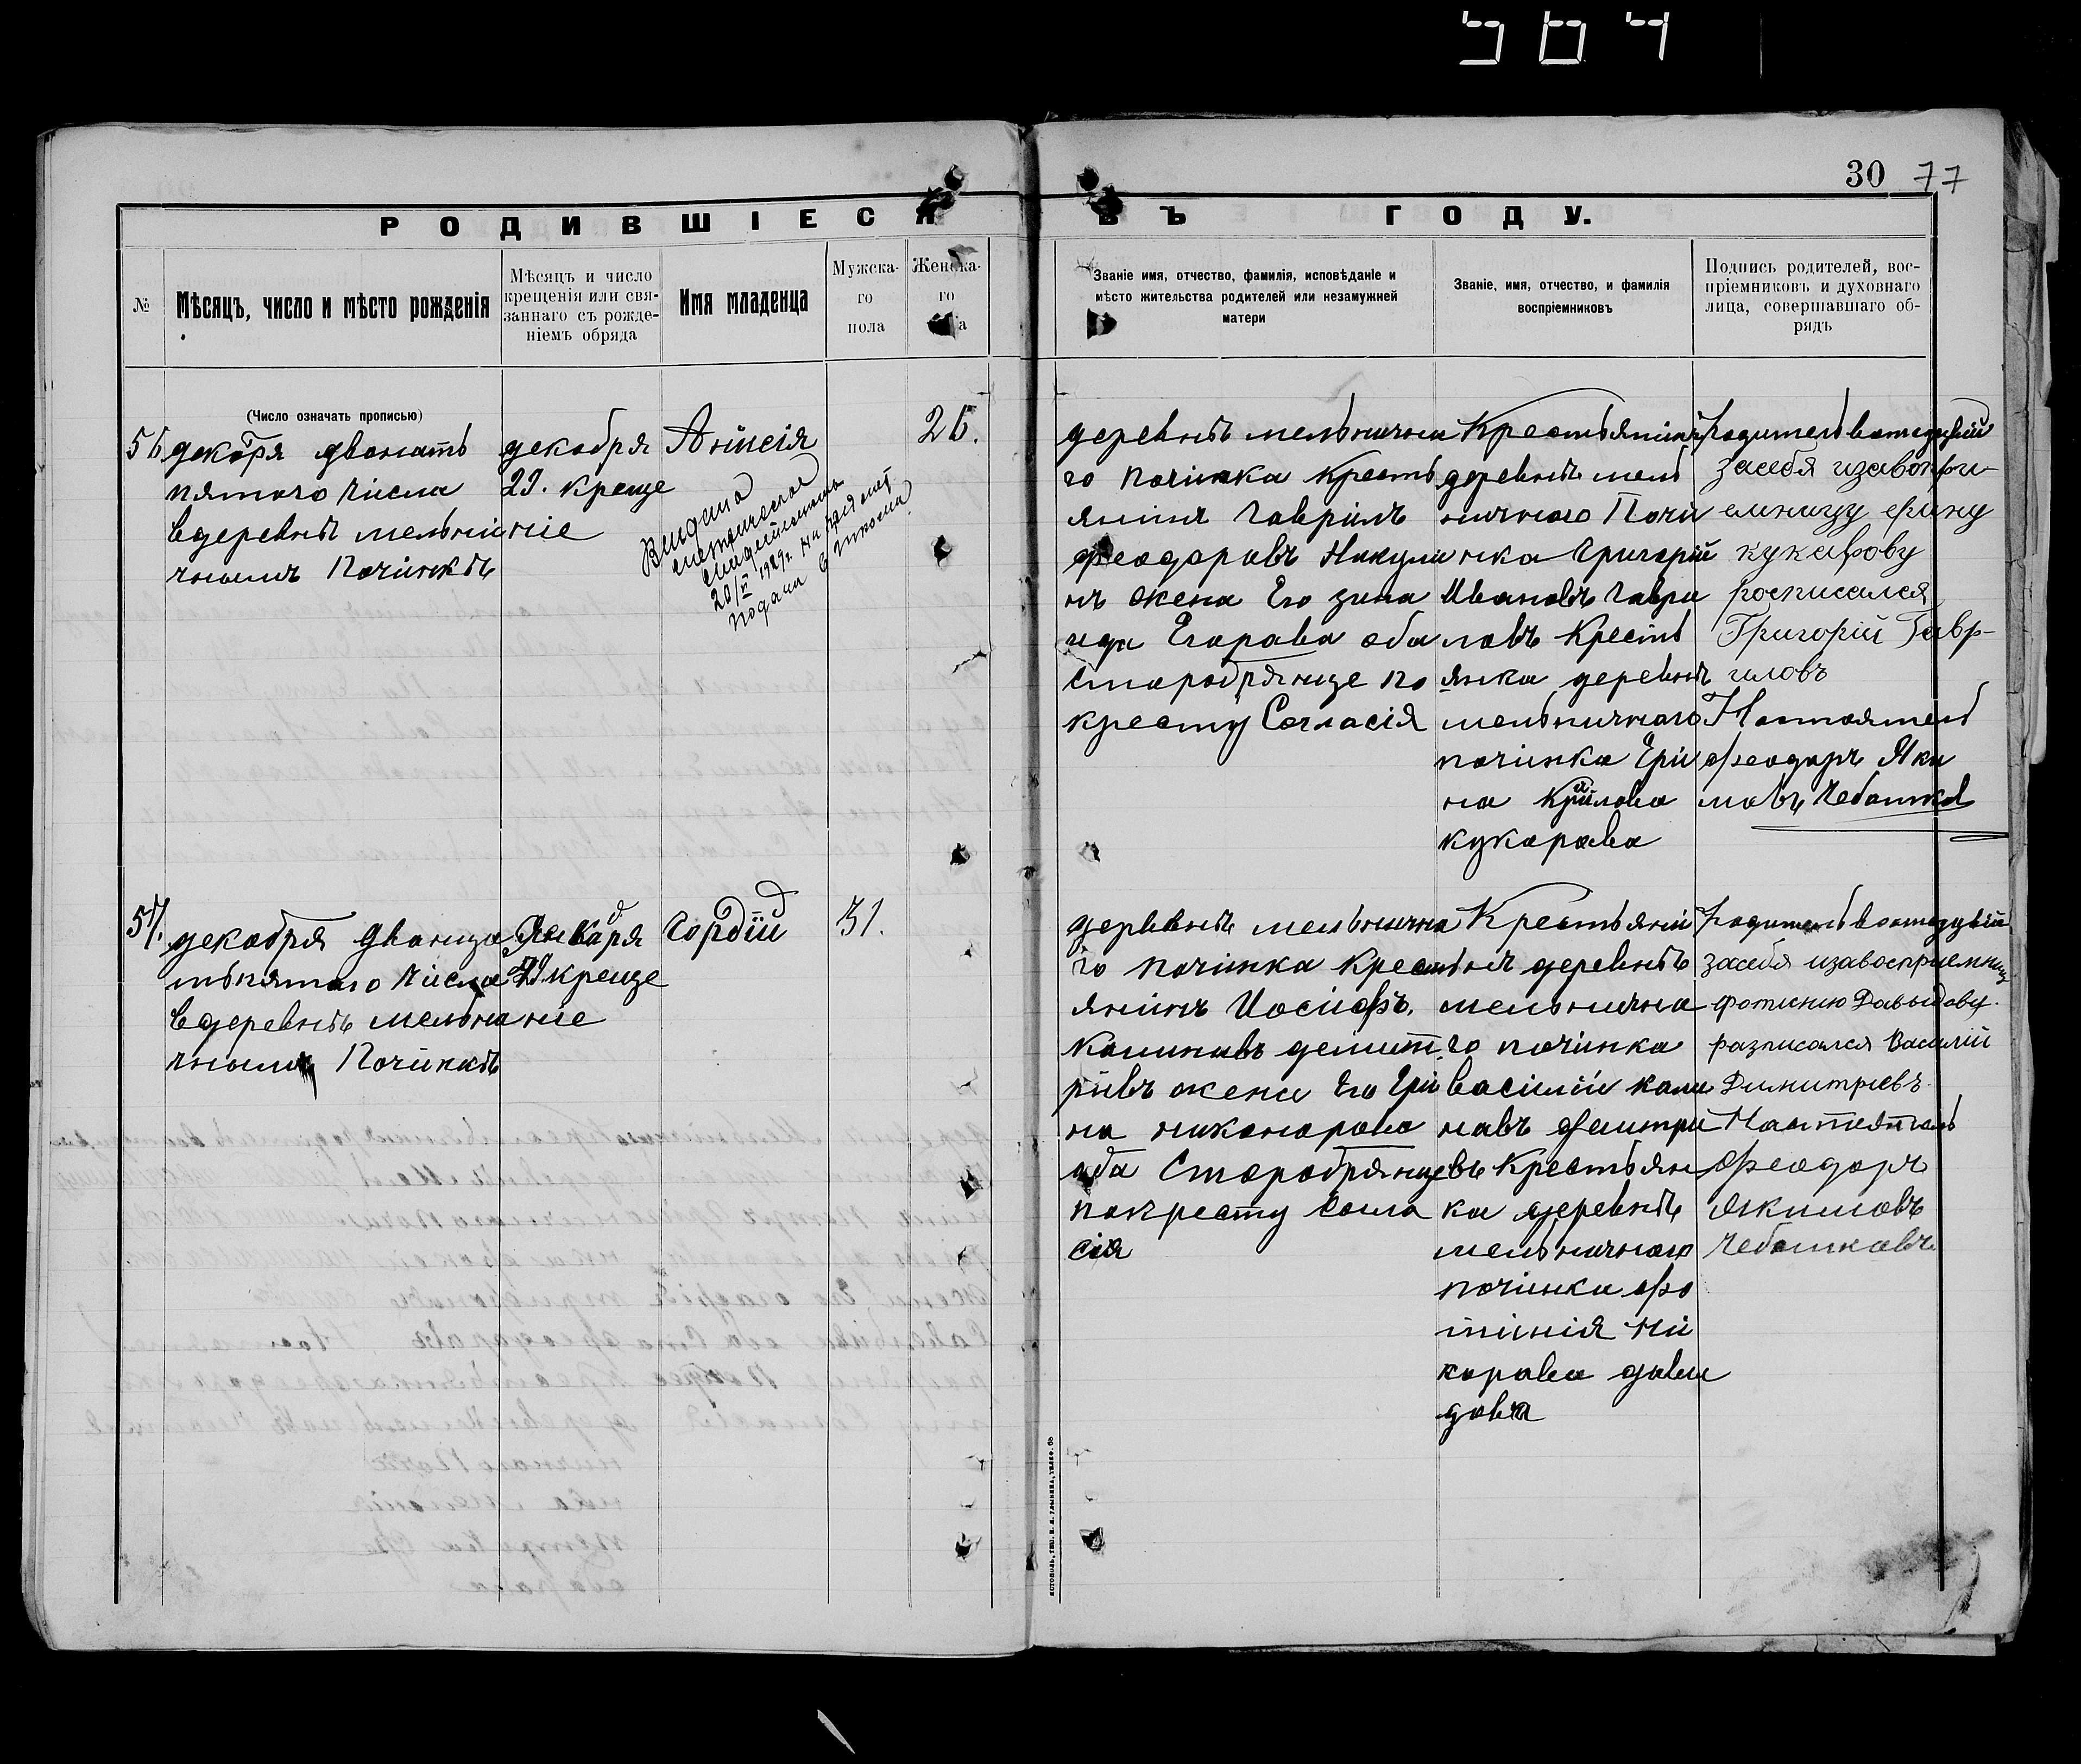 504
30 77
РОДИВШІЕСЯ ВЪ ГОДУ.
№
Мѣсяцъ, число и мѣсто рожденія
Мѣсяцъ и число
крещенія или свя-
заннаго съ рожде-
ніемъ обряда
Имя младенца
Мужска-
го
пола
Женска-
го
Званіе имя, отчество, фамилія, исповѣданіе и
мѣсто жительства родителей или незамужней
матери
Званіе, имя, отчество, и фамилія
воспріемниковъ
Подпись родителей, вос-
пріемниковъ и духовнаго
лица, совершавшаго об-
рядъ
(Число означать прописью)
56
декобря двонать
пятого числа
вдеревнѣ мельни
чномъ Починкѣ
декобря
29. креще
ніе
Анисія
Выдана
метрическая
20/II 1929г.
26.
деревнѣ мельнична
го починка кресть
янинъ Гаврилъ
феодоровъ Никули
нъ жена Его зина
ида Егорава оба
Старобрянце по
кресту Согласія
Крестьянинъ
деревнѣ мель
ничного Почи
нка Григорій
Ивановъ Гаври
ловъ Кресть
янка деревнѣ
мельничного
починка Ири
на Кирилова
кукарава
засебя изавоспри-
емницу ирину
кукарову
росписался
Григорій Гавр-
иловъ
Настоятель
феодоръ Яки
мовъ Чебашков
57.
декобря дванца
тьпятого числа
вдеревнѣ мельни
чномъ Починкѣ
Января
креще
ніе
Гордій
31.
деревнѣ мельнична
го починка кресть
янинъ Иосифъ.
Калинавъ демит
ривъ жена Его Ири
на никонорова
оба Старобрянце
покресту Согла
сія
Крестьяни
нъ деревнѣ
мельнична
го починка
василий кали
навъ демитри
въ Крестьян
ка деревнѣ
мельничного
починка фо
тинія ни
карава давы
дова
засебя изавосприемниц
фотинию Давыдову.
расписался Василій
Димитриевъ
Настоятель
Феодоръ
Якимовъ
Чебашковъ